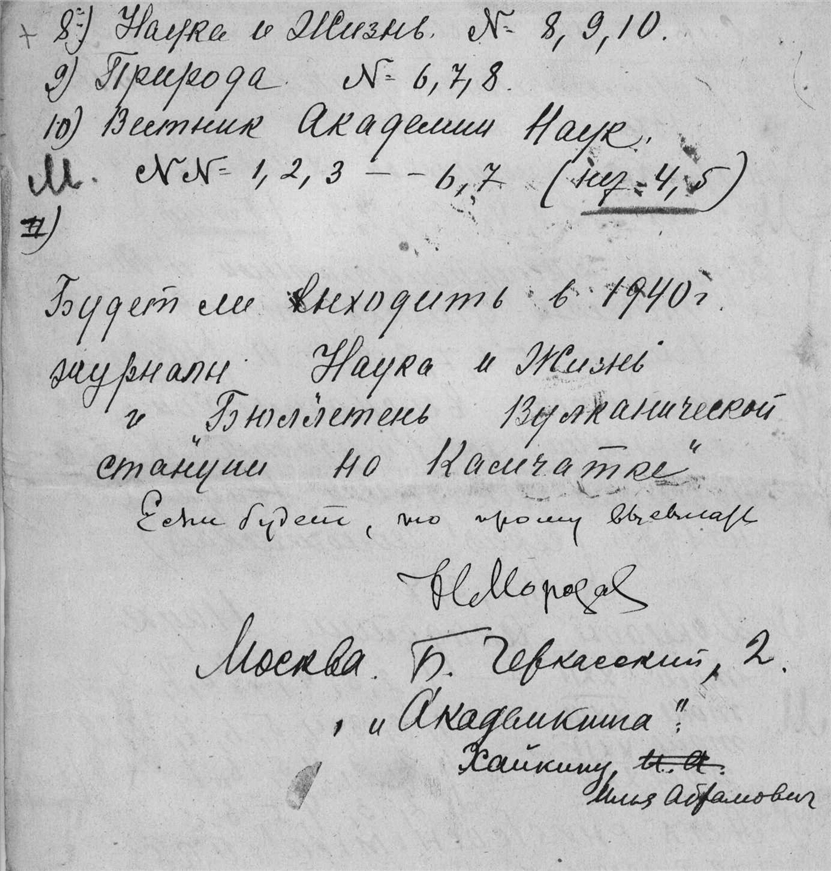 + 8) Наука и Жизнь. N= 8, 9, 10.
9) Природа. N= 6, 7, 8.
10) Вестник Академии Наук.
М. NN= 1, 2, 3 – – 6, 7 (нет 4, 5)
II)
Будет ли выходить в 1940 г.
журналы Наука и Жизнь
и Бюллетень Вулканической
станции на Камчатке"
Если будет, то прошу высылать
Н Морозов
Москва. Б. Черкасский, 2.
"Академкнига".
Хайкину, И. А.
Илья Абрамович